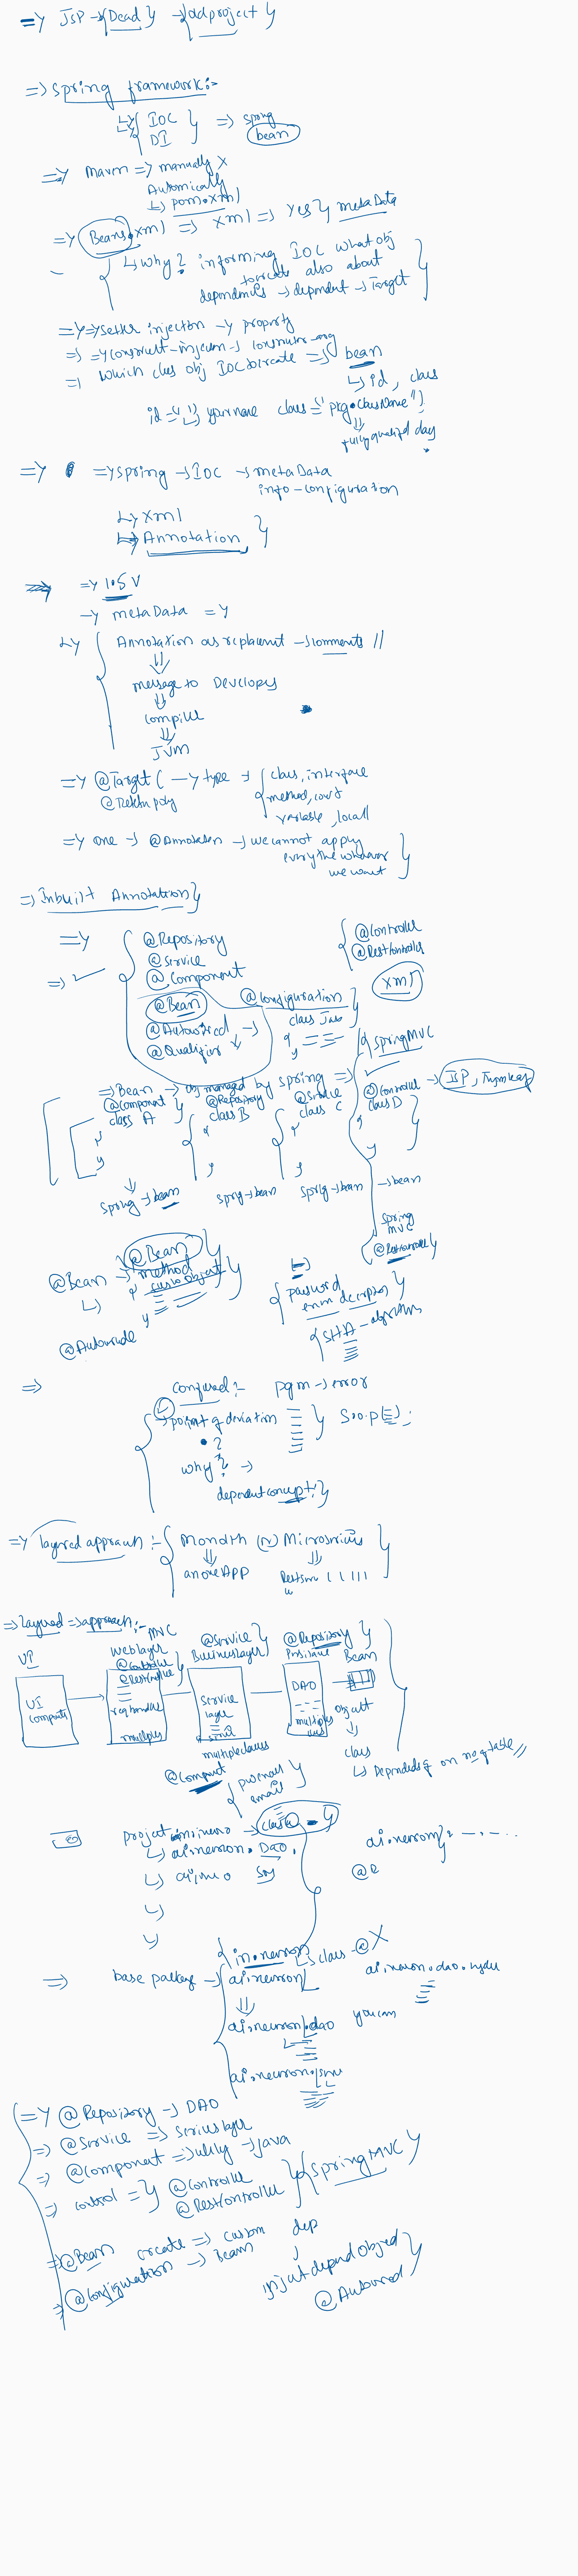 => JSP -> {Dead} -> {oldproject}
=> Spring framework:-
IOC
DI } => Spring bean
=> Maven => manually X
Automically
-> pom.xml
=> Beans.xml => xml => Yes} metaData
-> Why? informing IOC what obj
to create also about
dependencies -> dependent -> Target
=> => setter injection -> property
=> => construct-injection -> constructor-arg
=> Which class obj IOC to create => bean
-> id, class
id = "" -> your name class = "pkg.className"
fully qualified
=> => spring -> IOC -> metaData
info-configuration
-> xml
-> Annotation }
=> => 1.5 V
-> metaData =>
-> { Annotation as replacement -> comments //
message to Developers
compiler
JVM
=> @Target( -> type -> { class, interface
method, const
variable, local
=> one -> @Annotation -> we cannot apply
everywhere wherever
we want }
=> Inbuilt Annotation}
=> { @Repository
@Service
@Component
@Bean
@Autowired ->
@Qualifier
{ @Controller
@RestController
xml
@Configuration
class
{ SpringMVC
=> Bean -> obj managed by spring =>
@Component
class A
@Repository
class B
@Service
class C
@Controller -> JSP,
class D
spring -> bean spring -> bean spring -> bean -> bean
spring
MVC
@RestController}
@Bean
@Bean -> method
custom object
@Autowired
{ password
SHA - algorithms
=> confused:- pgm -> error
-> point of deviation } S.o.p(=);
?
Why? ->
dependent concept:}
=> layered approach:- { Monolith (or) Microservices
an one APP
=> Layered => approach:- MVC
UI
UI
weblayer
@Controller
@RestController
multiples
@Service
Business layer
Service
layer
multiple classes
@Repository }
Persistence
DAO
multiples
Bean
object
class
-> Depends on no of table
@Component
{
email
project -> class }
-> ai.neuron.Dao.
ai.neuron}: - . - . . .
@R
{ in.neuron -> class - @ X
=> base package -> ai.neuron
ai.neuron.dao you can
ai.neuron.
=> @Repository -> DAO
=> @Service => Service layer
=> @Component => utility -> java
=> control => @Controller
@RestController } { SpringMVC }
=> @Bean create => custom dep
=> @Configuration -> Bean
inject depend object
@Autowired }